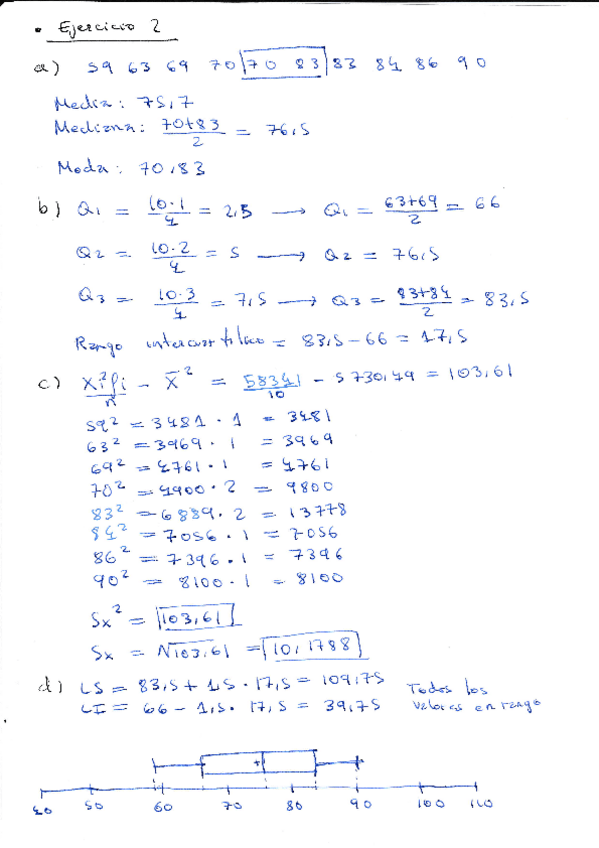 • Ejercicio 2
a) 59 63 69 70 70 83 83 84 86 90
Media: 75,7
Mediana: (70+83)/2 = 76,5
Moda: 70,83
b) Q1 = (10·1)/4 = 2,5 → Q1 = (63+69)/2 = 66
Q2 = (10·2)/4 = 5 → Q2 = 76,5
Q3 = (10·3)/4 = 7,5 → Q3 = (83+84)/2 = 83,5
Rango intercuartílico = 83,5 - 66 = 17,5
c) (xi² fi)/n - x̄² = 58341/10 - 5730,49 = 103,61
59² = 3481 · 1 = 3481
63² = 3969 · 1 = 3969
69² = 4761 · 1 = 4761
70² = 4900 · 2 = 9800
83² = 6889 · 2 = 13778
84² = 7056 · 1 = 7056
86² = 7396 · 1 = 7396
90² = 8100 · 1 = 8100
Sx² = 103,61
Sx = √103,61 = 10,1788
d) LS = 83,5 + 1,5 · 17,5 = 109,75 Todos los
LI = 66 - 1,5 · 17,5 = 39,75 valores en rango
40 50 60 70 80 90 100 110